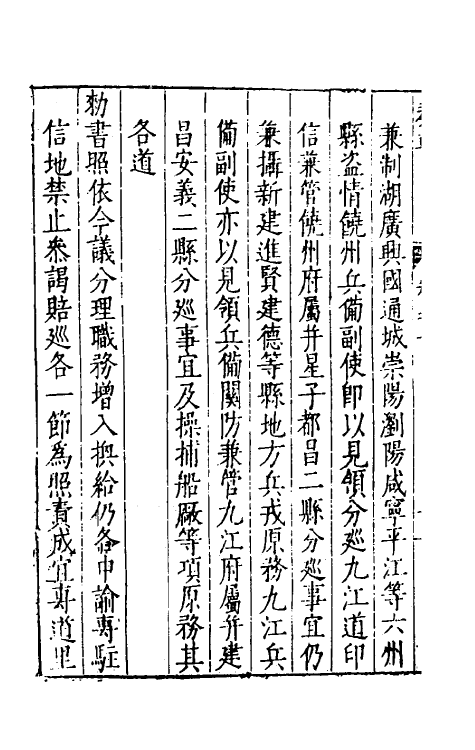 兼制湖廣興國通城崇陽瀏陽咸寧平江等六州
縣盗情饒州兵備副使即以見領分廵九江道印
信兼管饒州府屬并星子都昌二縣分廵事宜仍
兼攝新建進賢建德等縣地方兵戎原務九江兵
備副使亦以見領兵備關防兼管九江府屬并建
昌安義二縣分廵事宜及操捕船厰等項原務其
各道
勑書照依今議分理職務增入換給仍各申諭專駐
信地禁止叅謁陪廵各一節為照責成宜專道里